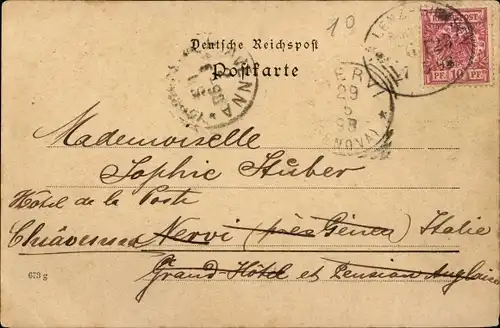 10
Deutsche Reichspost
Postkarte
PF. 10 PF.
NERVI
29
5
98
(GENOVA)
Mademoiselle
Sophie Stuber
Hôtel de la Poste
Chiavenna Nervi (près Gênes) Italie
Grand-Hôtel et Pension Anglaise
673 g